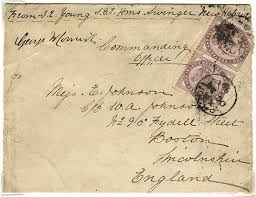 From J. E. Young S.B.A. H.M.S. Swinger
George
Commanding
Officer
To
Miss E. Johnson
c/o W. A. Johnson
Hydell Street
Boston
Lincolnshire
England